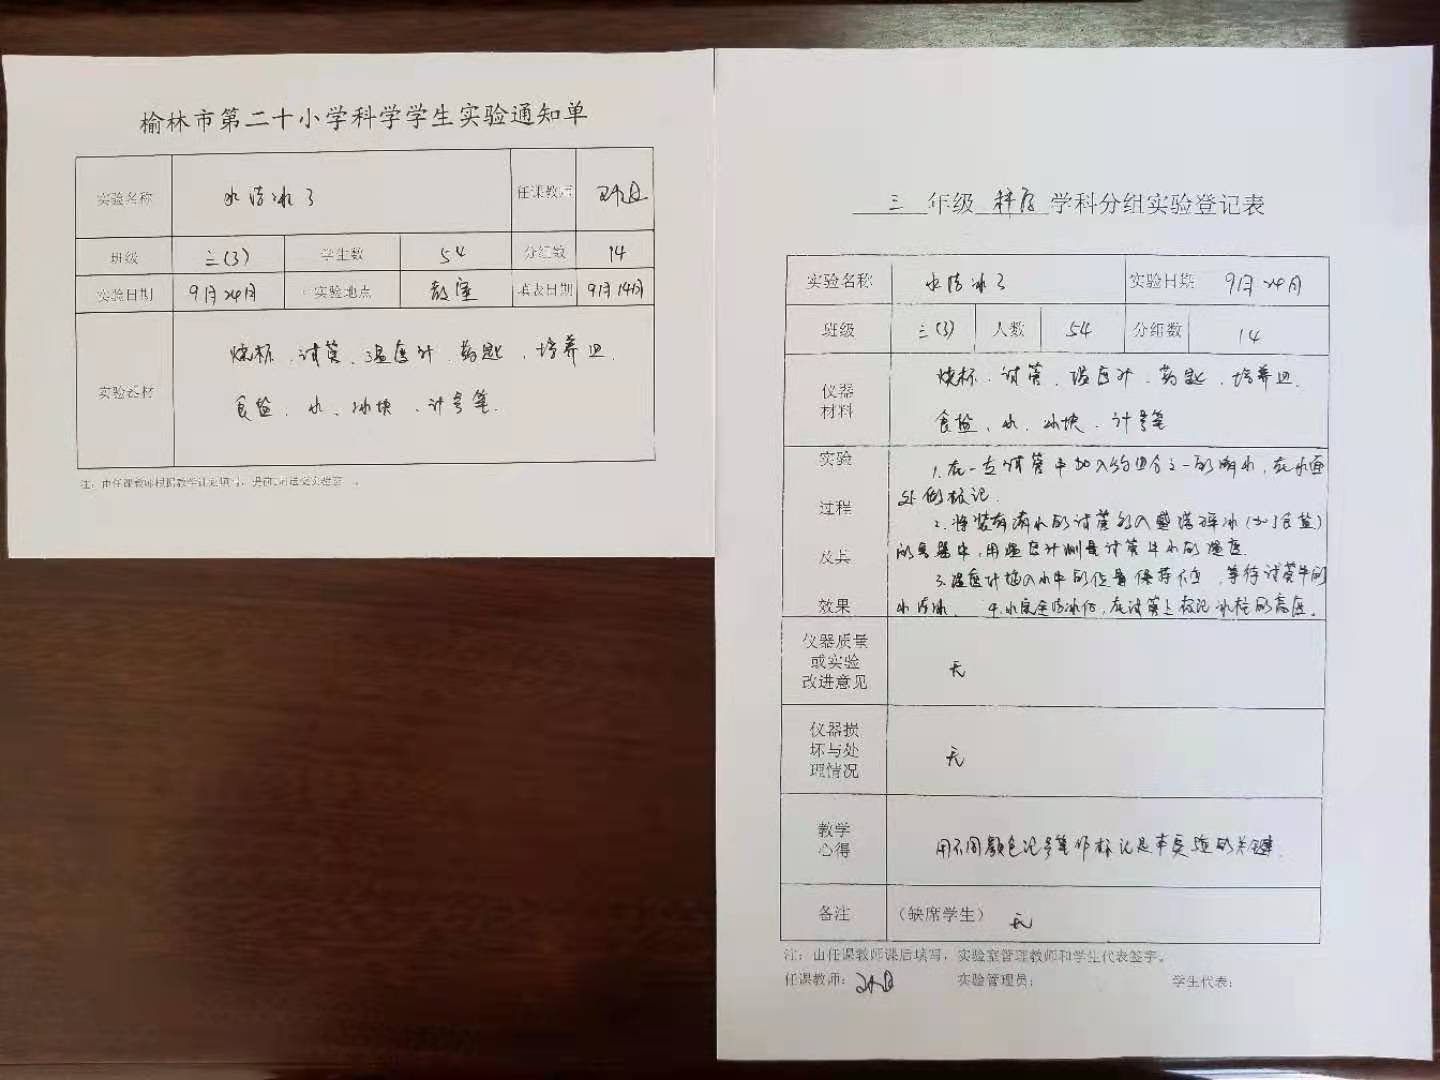 榆林市第二十小学科学学生实验通知单
实验名称 水结冰了 任课教师
班级 三(3) 学生数 54 分组数 14
实验日期 9月24日 实验地点 教室 填表日期 9月14日
实验器材
烧杯、试管、温度计、药匙、培养皿、
食盐、水、冰块、计号笔.
注：由任课教师根据教学计划填写，提前
三 年级 科学 学科分组实验登记表
实验名称 水结冰了 实验日期 9月24日
班级 三(3) 人数 54 分组数 14
仪器材料
烧杯、试管、温度计、药匙、培养皿、
食盐、水、冰块、计号笔
实验过程及其效果
1.在一支试管中加入约四分之一的清水，在水面
处做标记.
2.将装有清水的试管插入盛满碎冰(加食盐)
的容器中，用温度计测量试管中水的温度.
3.温度计插入水中的位置保持不变，等待试管中的
水结冰. 4.水完全结冰后，在试管上标记冰柱的高度.
仪器质量或实验改进意见 无
仪器损坏与处理情况 无
教学心得 用不同颜色记号笔作标记是本实验的关键.
备注 （缺席学生） 无
注：由任课教师课后填写，实验室管理教师和学生代表签字。
任课教师： 实验管理员： 学生代表：